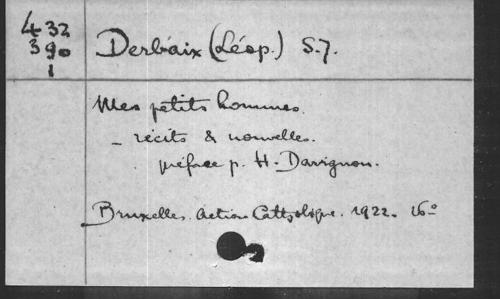 432
390
1
Derbaix (Léop.) S.J.
Mes petits hommes.
_ récits & nouvelles.
préface p. H. Davignon.
Bruxelles. Action Catholique. 1922. 16°